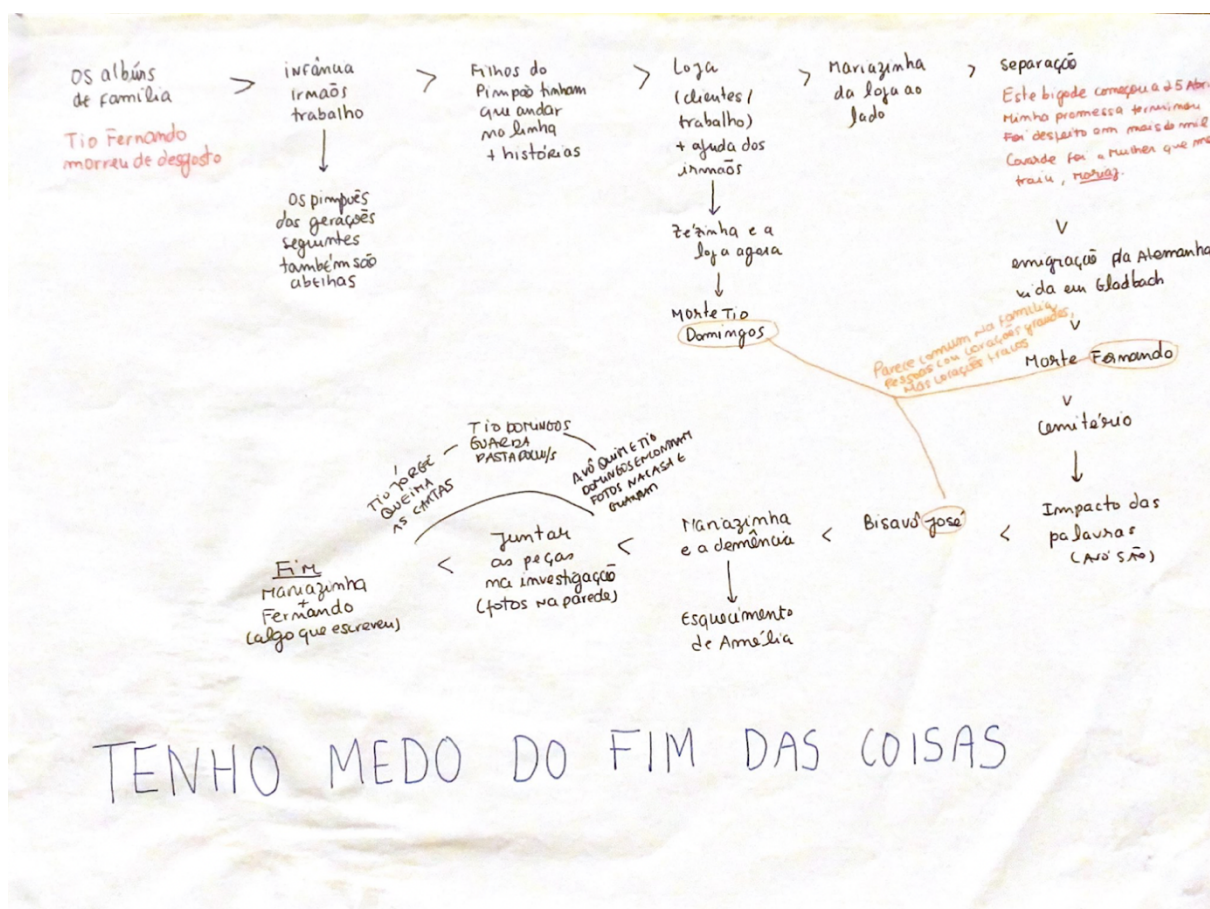 Os albúns
de família
Tio Fernando
morreu de desgosto
>
infância
irmãos
trabalho
Os pimpões
das gerações
seguintes
também são
abelhas
>
Filhos do
Pimpão tinham
que andar
na linha
+ histórias
>
Loja
(clientes/
trabalho)
+ ajuda dos
irmãos
Zézinha e a
loja agora
Morte Tio
Domingos
>
Mariazinha
da loja ao
lado
>
separação
Este bigode começou a 25 Abri
Minha promessa terminou
Foi desfeito em mais de mil
Covarde foi a mulher que me
traiu, Mariaz.
>
emigração p/a Alemanha
vida em Gladbach
>
Morte Fernando
Parece comum na família,
Pessoas com corações grandes,
Mas corações fracos
>
Cemitério
Impacto das
palavras
(AVÓ SÃO)
<
Bisavô José
<
Mariazinha
e a demência
Esquecimento
de Amélia
<
Juntar
as peças
na investigação
(fotos na parede)
AVÔ QUIM E TIO
DOMINGOS ENCONTRAM
FOTOS NA CASA E
GUARDAM
TIO DOMINGOS
GUARDA
PASTA
TIO JORGE
QUEIMA
AS CARTAS
<
Fim
Mariazinha
+
Fernando
(algo que escreveu)
TENHO MEDO DO FIM DAS COISAS